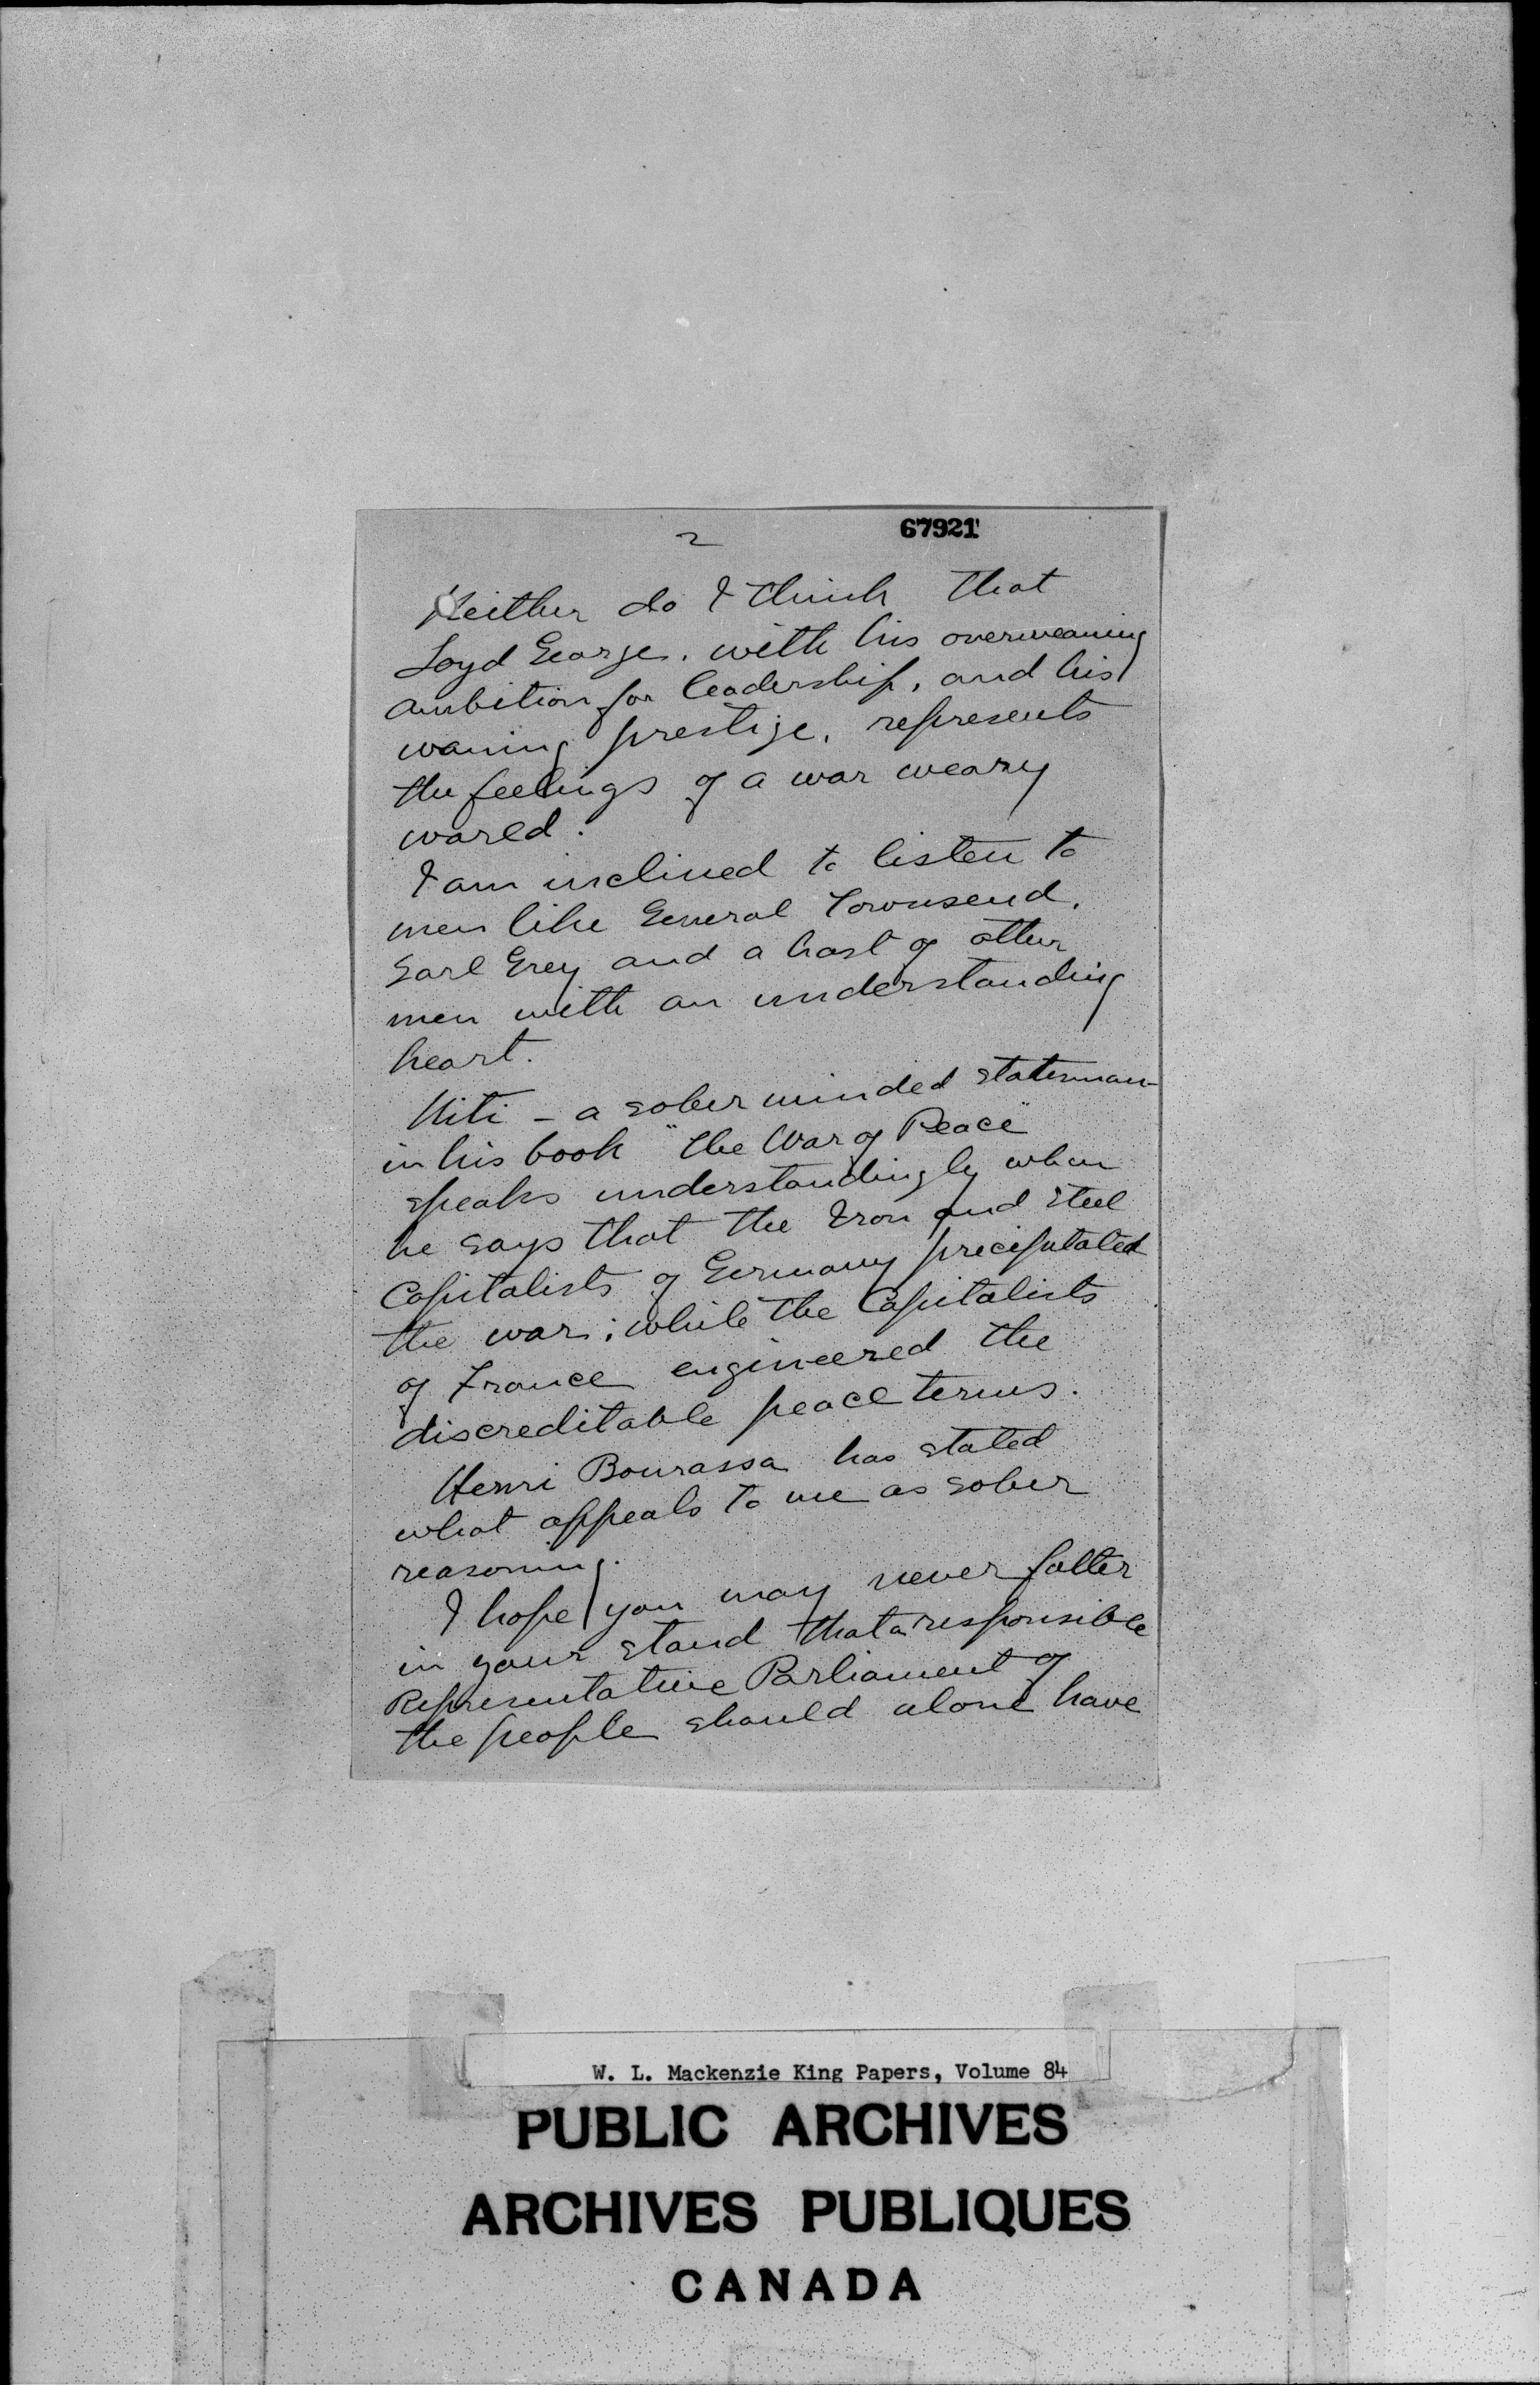 2
67921
Neither do I think that
Loyd George, with his overweaning
ambition for leadership, and his
waning prestige, represents
the feelings of a war weary
world.
I am inclined to listen to
men like General Townsend,
Earl Grey and a host of other
men with an understanding
heart.
Niti - a sober minded statesman
in his book "The War of Peace"
speaks understandingly when
he says that the Iron and Steel
Capitalists of Germany precipitated
the war; while the Capitalists
of France engineered the
discreditable peace terms.
Henri Bourassa has stated
what appeals to me as sober
reasoning.
I hope you may never falter
in your stand that a responsible
Representative Parliament of
the people should alone have
W. L. Mackenzie King Papers, Volume 84
PUBLIC ARCHIVES
ARCHIVES PUBLIQUES
CANADA